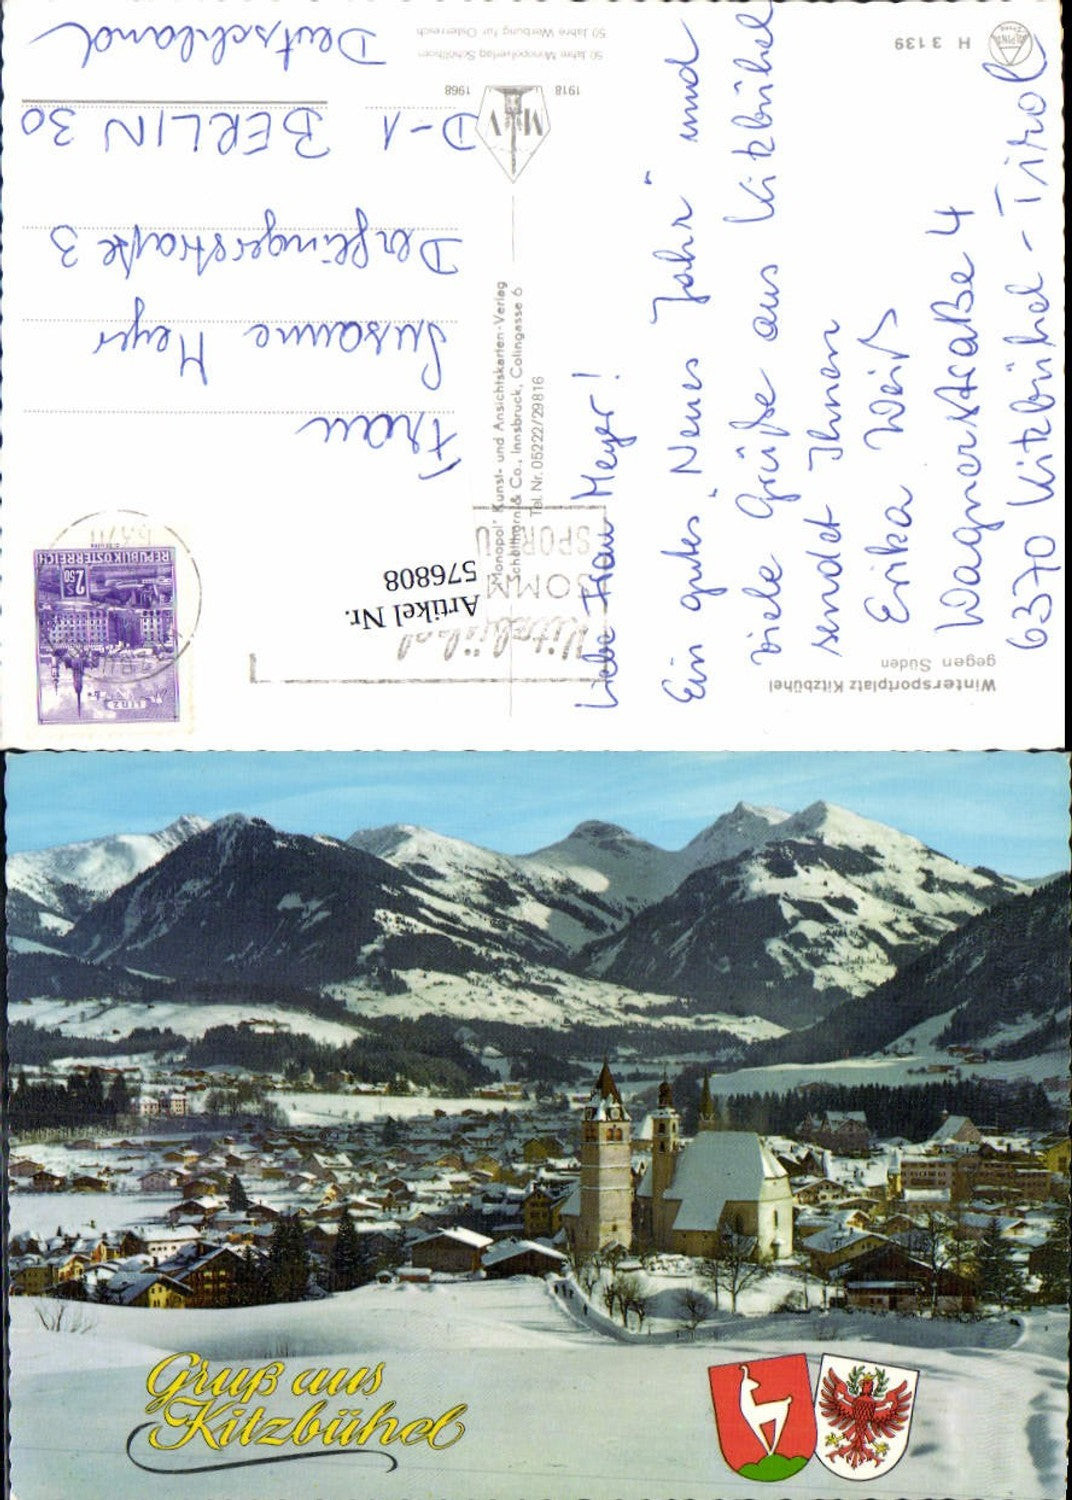 Liebe Frau Meyer!
Ein gutes „Neues Jahr" und
viele Grüße aus Kitzbühel
sendet Ihnen
Erika Weiß
Wagnerstraße 4
6370 Kitzbühel - Tirol
Frau
Susanne Meyer
Derflingerstraße 3
D-1 BERLIN 30
Deutschland
Wintersportplatz Kitzbühel
gegen Süden
H 3139
1918
1968
MKV
50 Jahre Monopolverlag Schöllhorn
50 Jahre Werbung für Österreich
„Monopol" Kunst- und Ansichtskarten-Verlag
Schöllhorn & Co., Innsbruck, Colingasse 6
Tel. Nr. 05222/29816
Artikel Nr.
576808
Kitzbühel
SOMM
SPORT U
REPUBLIK ÖSTERREICH
2.50
LINZ
Gruß aus
Kitzbühel